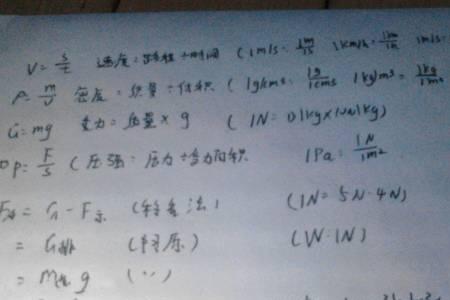 V = s/t 速度 = 路程 ÷ 时间 ( 1m/s = 1m/1s 1km/h = 1km/1h 1m/s=
ρ = m/V 密度 = 质量 ÷ 体积 ( 1g/cm³ = 1g/1cm³ 1kg/m³ = 1kg/1m³
G = mg 重力 = 质量 × g ( 1N =
P = F/S ( 压强 = 压力 ÷ 受力面积 1Pa = 1N/1m²
= G - F示 (称重法) (1N = 5N - 4N)
= G排 ( ) (W·1N)
= m排 g ( )